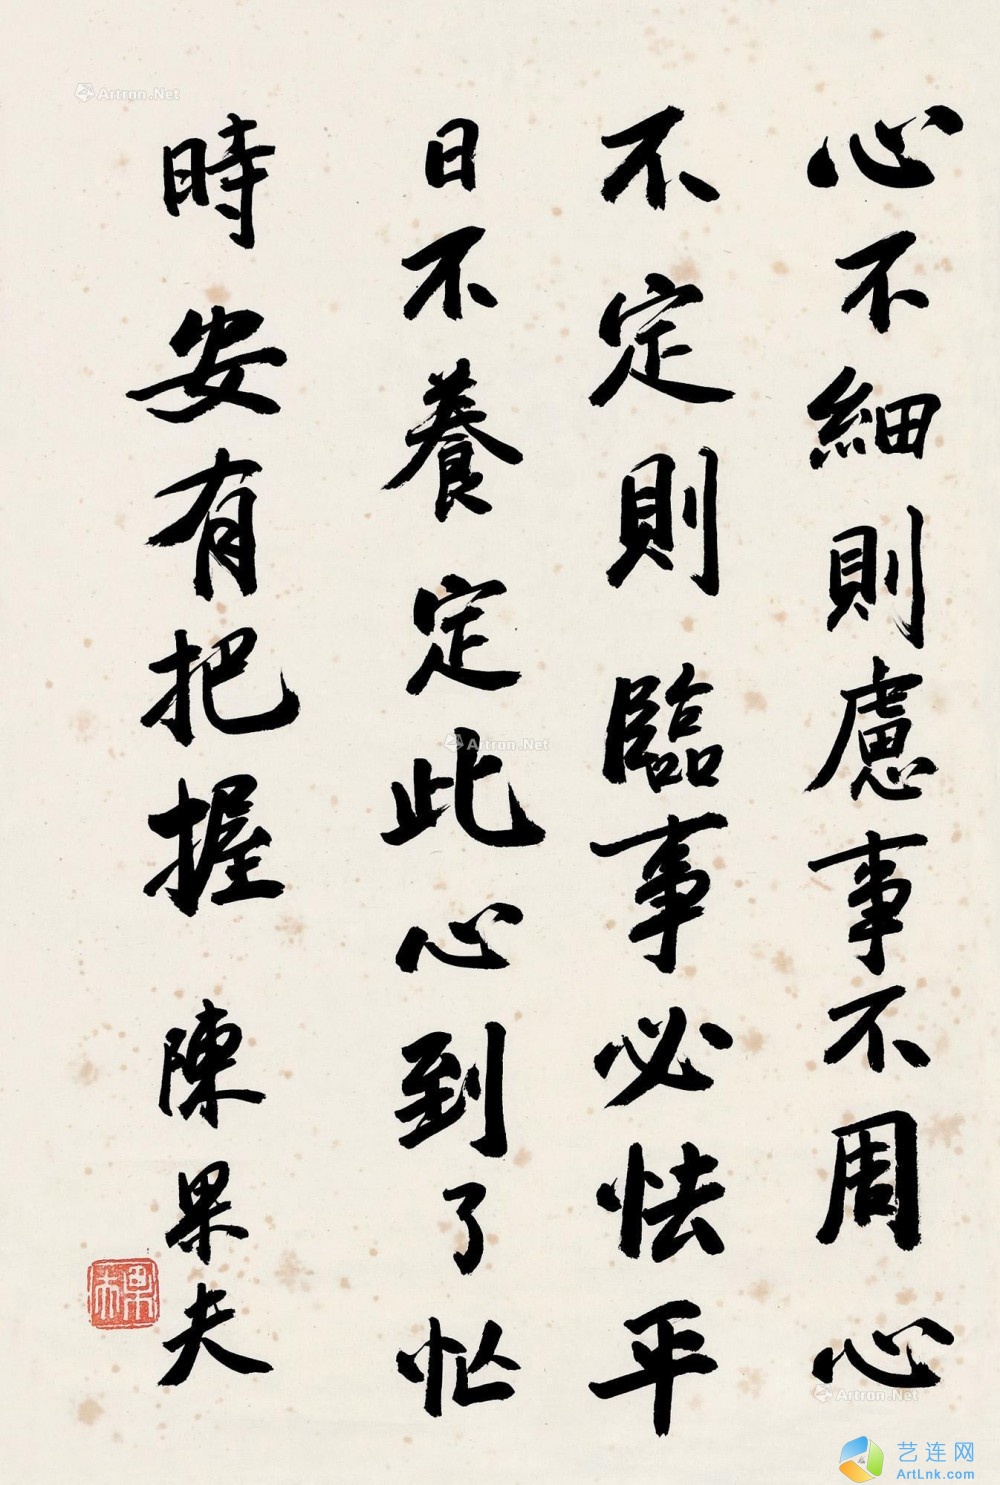 心不細則慮事不周心
不定則臨事必怯平
日不養定此心到了忙
時安有把握 陳果夫
果夫
Artron.Net
Artron.Net
Artron.Net
艺连网
ArtLnk.com